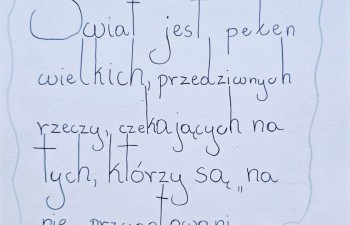 Świat jest pełen
wielkich, przedziwnych
rzeczy, czekających na
tych, którzy są „na
nie przygotowani